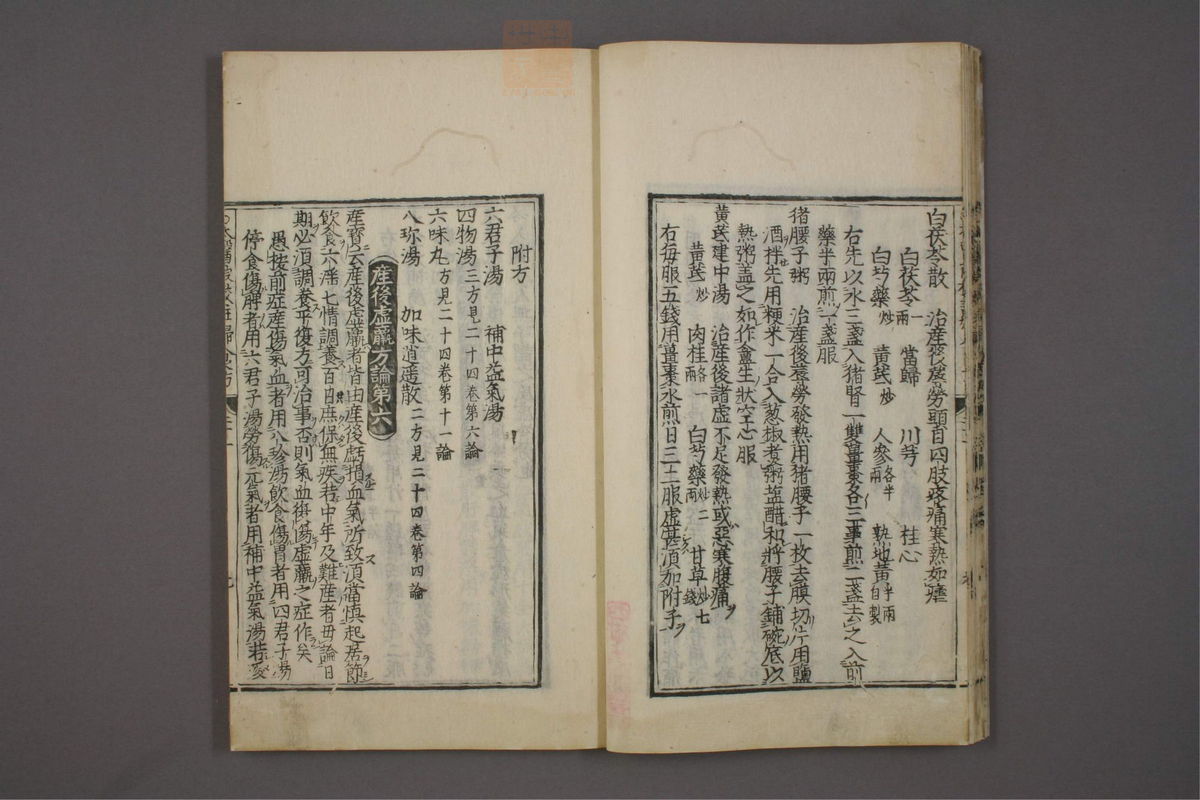 白茯苓散　治産後蓐勞頭目四肢疼痛寒熱如瘧
白茯苓一兩　當歸　川芎　桂心
白芍藥炒　黃芪炒　人參各半兩　熟地黃半兩自製
右先以水三盞入猪腎一雙薑棗各三事煎二盞去之入前
藥半兩煎一盞服
猪腰子粥　治産後蓐勞發熱用猪腰子一枚去膜切片用鹽
酒拌先用粳米一合入葱椒煑粥鹽醋和將腰子鋪碗底以
熱粥盖之如作盦生狀空心服
黃芪建中湯　治産後諸虛不足發熱或惡寒腹痛
黃芪炒　肉桂各一兩　白芍藥炒二兩　甘草炒七錢
右每服五錢用薑棗水煎日二三服虛甚須加附子
附方
六君子湯　補中益氣湯
四物湯三方見二十四卷第六論
六味丸方見二十四卷第十一論
八珎湯　加味逍遥散二方見二十四卷第四論
産後虛羸方論第六
産寶云産後虛羸者皆由産後虧損血氣所致須當慎起居節
飲食六淫七情調養百日庶保無疾若中年及難産者毋論日
期必須調養平復方可治事否則氣血復傷虛羸之症作矣
愚按前症産傷氣血者用八珍湯飲食傷胃者用四君子湯
停食傷脾者用六君子湯勞傷元氣者用補中益氣湯若